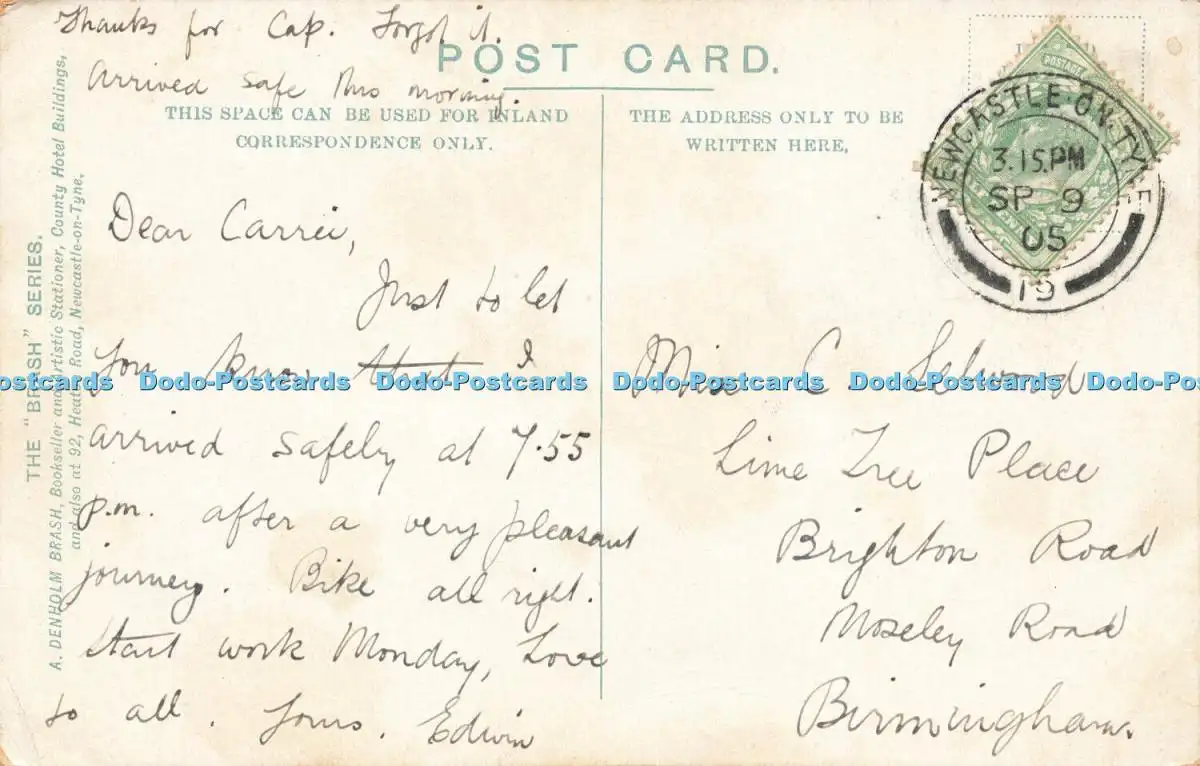 Thanks for Cap. Forgot it.
Arrived safe this morning.
POST CARD.
THIS SPACE CAN BE USED FOR INLAND
CORRESPONDENCE ONLY.
THE ADDRESS ONLY TO BE
WRITTEN HERE.
POSTAGE
NEWCASTLE-ON-TYNE
3.15.PM
SP 9
05
19
THE "BRASH" SERIES.
A. DENHOLM BRASH, Bookseller and Artistic Stationer, County Hotel Buildings,
and also at 92, Heaton Road, Newcastle-on-Tyne.
Dear Carrie,
Just to let
you know that I
arrived safely at 7.55
p.m. after a very pleasant
journey. Bike all right.
Start work Monday, Love
to all. Yours, Edwin
Miss C Selwood
Lime Tree Place
Brighton Road
Moseley Road
Birmingham.
Dodo-Postcards Dodo-Postcards Dodo-Postcards Dodo-Postcards Dodo-Postcards Dodo-Postcards